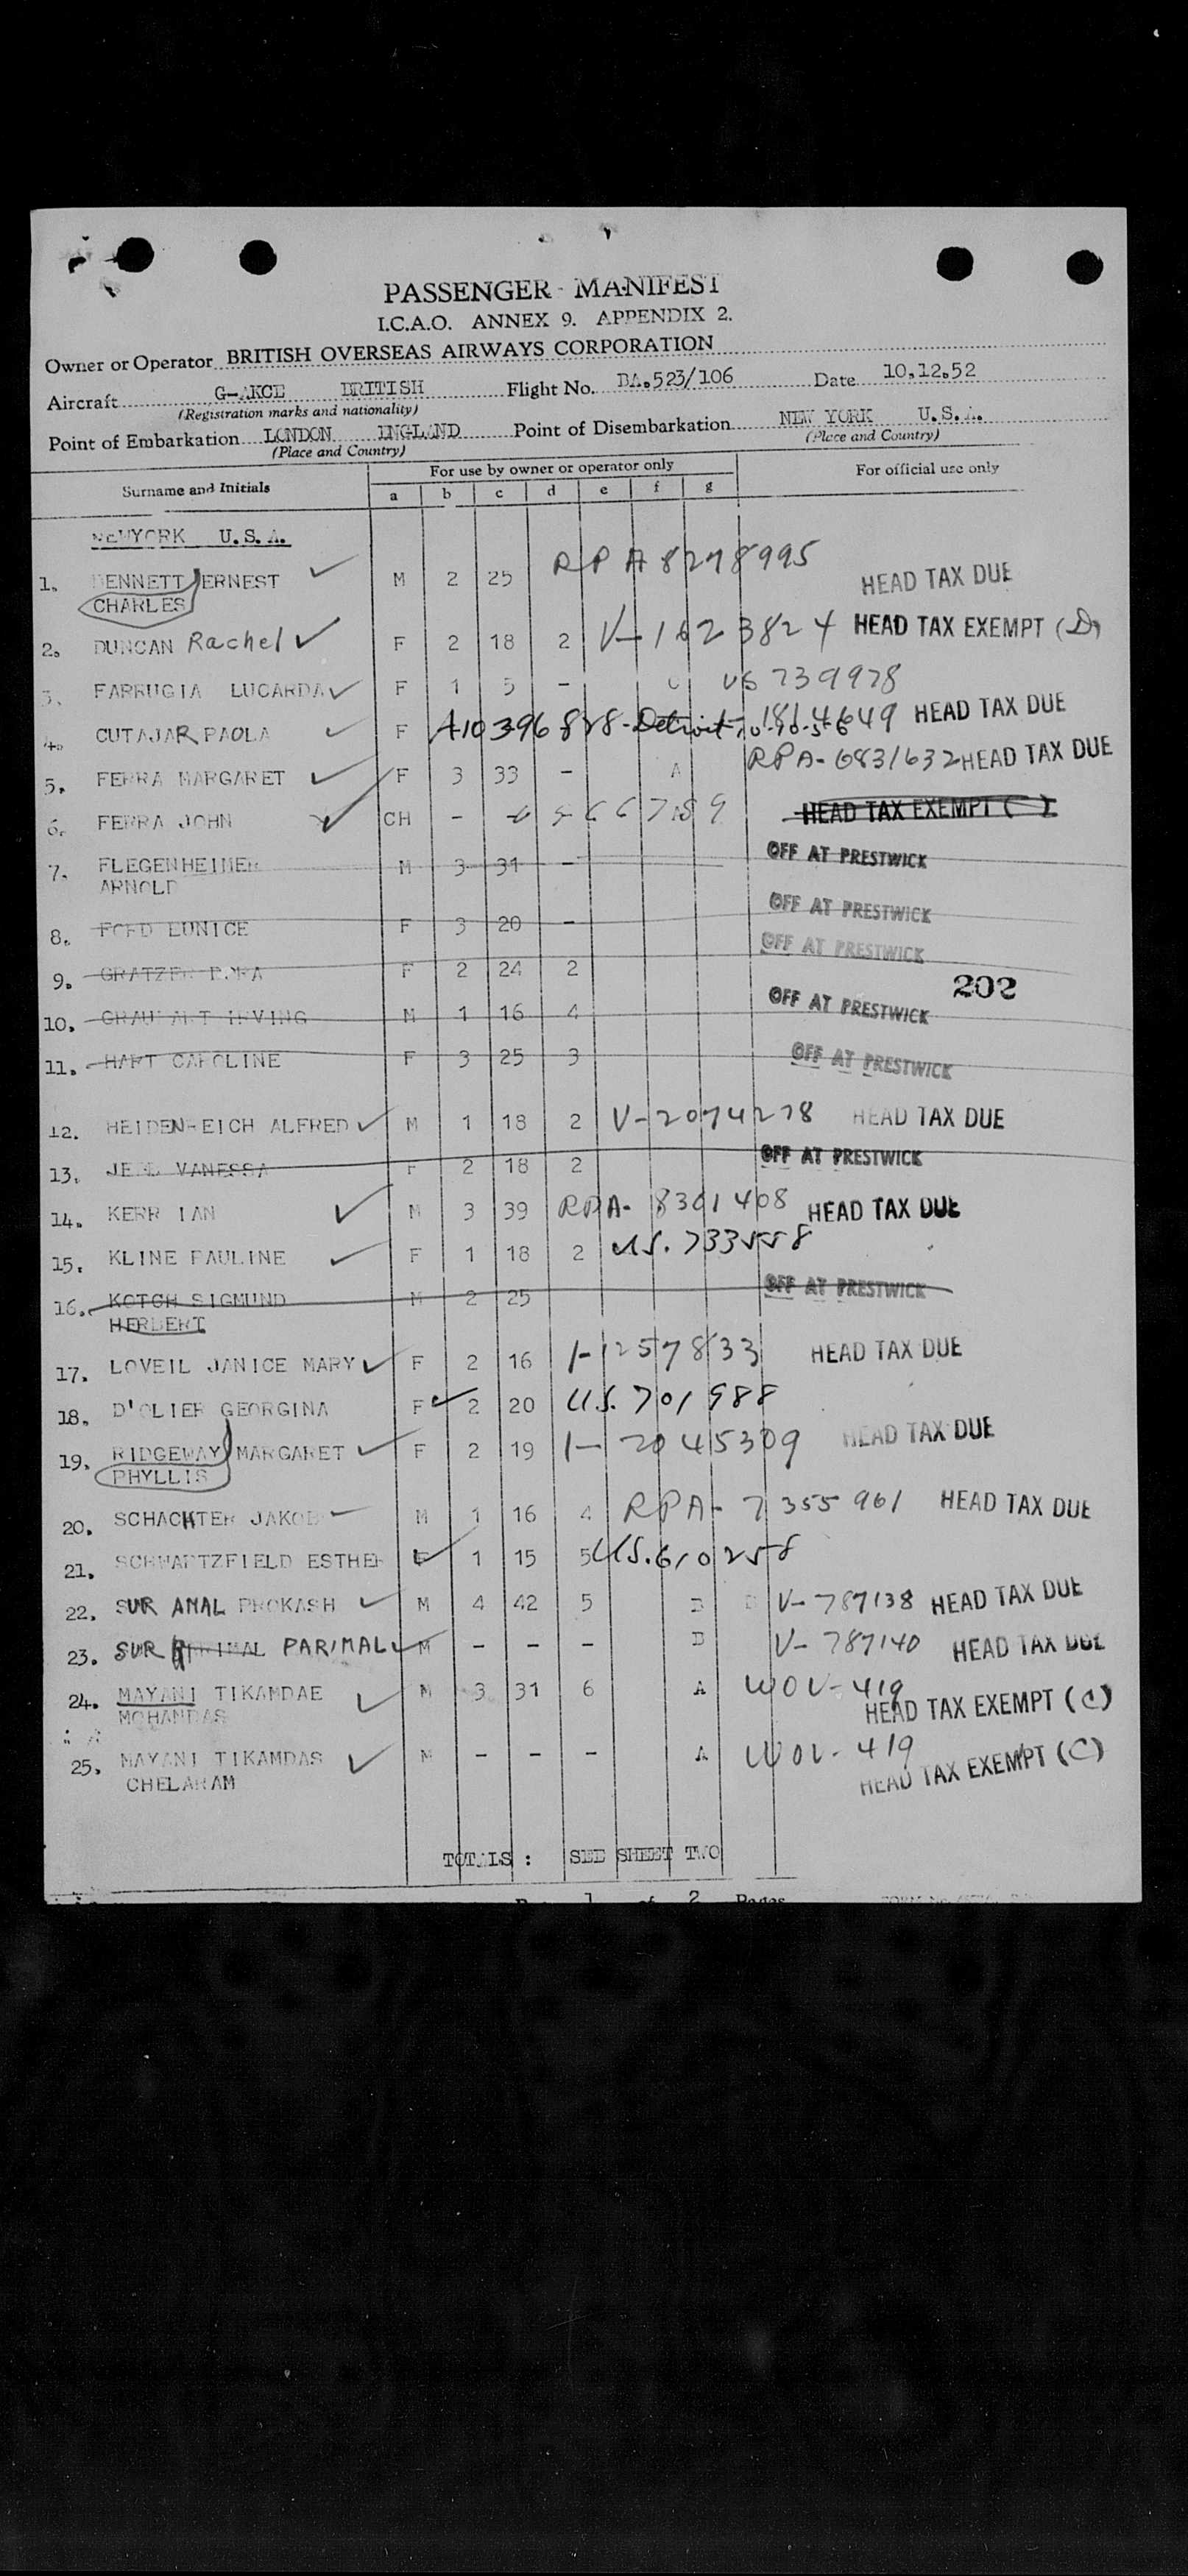 PASSENGER MANIFEST
I.C.A.O. ANNEX 9. APPENDIX 2.
Owner or Operator BRITISH OVERSEAS AIRWAYS CORPORATION
Aircraft G-AKCE BRITISH Flight No. BA.523/106 Date 10.12.52
(Registration marks and nationality)
Point of Embarkation LONDON ENGLAND Point of Disembarkation NEW YORK U.S.A.
(Place and Country) (Place and Country)
Surname and Initials For use by owner or operator only For official use only
a b c d e f g
NEWYORK U.S.A.
1. BENNETT ERNEST M 2 25 RPA 8278995 HEAD TAX DUE
CHARLES
2. DUNCAN Rachel F 2 18 2 V-1623824 HEAD TAX EXEMPT (D)
3. FARRUGIA LUCARDA F 1 5 - C US 739978
4. CUTAJAR PAOLA F A10396828-Detroit HEAD TAX DUE
5. FERRA MARGARET F 3 33 - A RPA-6831632 HEAD TAX DUE
6. FERRA JOHN CH - HEAD TAX EXEMPT ( )
7. FLEGENHEIMER M 3 31 - OFF AT PRESTWICK
ARNOLD
8. FORD EUNICE F 3 20 - OFF AT PRESTWICK
9. F 2 24 2 OFF AT PRESTWICK
202
10. IRVING M 1 16 4 OFF AT PRESTWICK
11. HART CAROLINE F 3 25 3 OFF AT PRESTWICK
12. HEIDENREICH ALFRED M 1 18 2 V-2074278 HEAD TAX DUE
13. VANESSA F 2 18 2 OFF AT PRESTWICK
14. KERR IAN M 3 39 RPA-8301408 HEAD TAX DUE
15. KLINE PAULINE F 1 18 2 US.733558
16. KOTCH SIGMUND M 2 25 OFF AT PRESTWICK
HERBERT
17. LOVEIL JANICE MARY F 2 16 1-1257833 HEAD TAX DUE
18. D'OLIER GEORGINA F 2 20 US.701988
19. RIDGEWAY MARGARET F 2 19 1-2045309 HEAD TAX DUE
PHYLLIS
20. SCHACHTER JAKOB M 1 16 4 RPA-7355961 HEAD TAX DUE
21. SCHWARTZFIELD ESTHER F 1 15 5 US.610258
22. SUR AMAL PROKASH M 4 42 5 D V-787138 HEAD TAX DUE
23. SUR PARIMAL M - - - D V-787140 HEAD TAX DUE
24. MAYANI TIKAMDAE M 3 31 6 A WOV-419
MOHANDAS HEAD TAX EXEMPT (C)
25. MAYANI TIKAMDAS M - - - A WOV-419
CHELARAM HEAD TAX EXEMPT (C)
TOTALS : SEE SHEET TWO
1 of 2 Pages